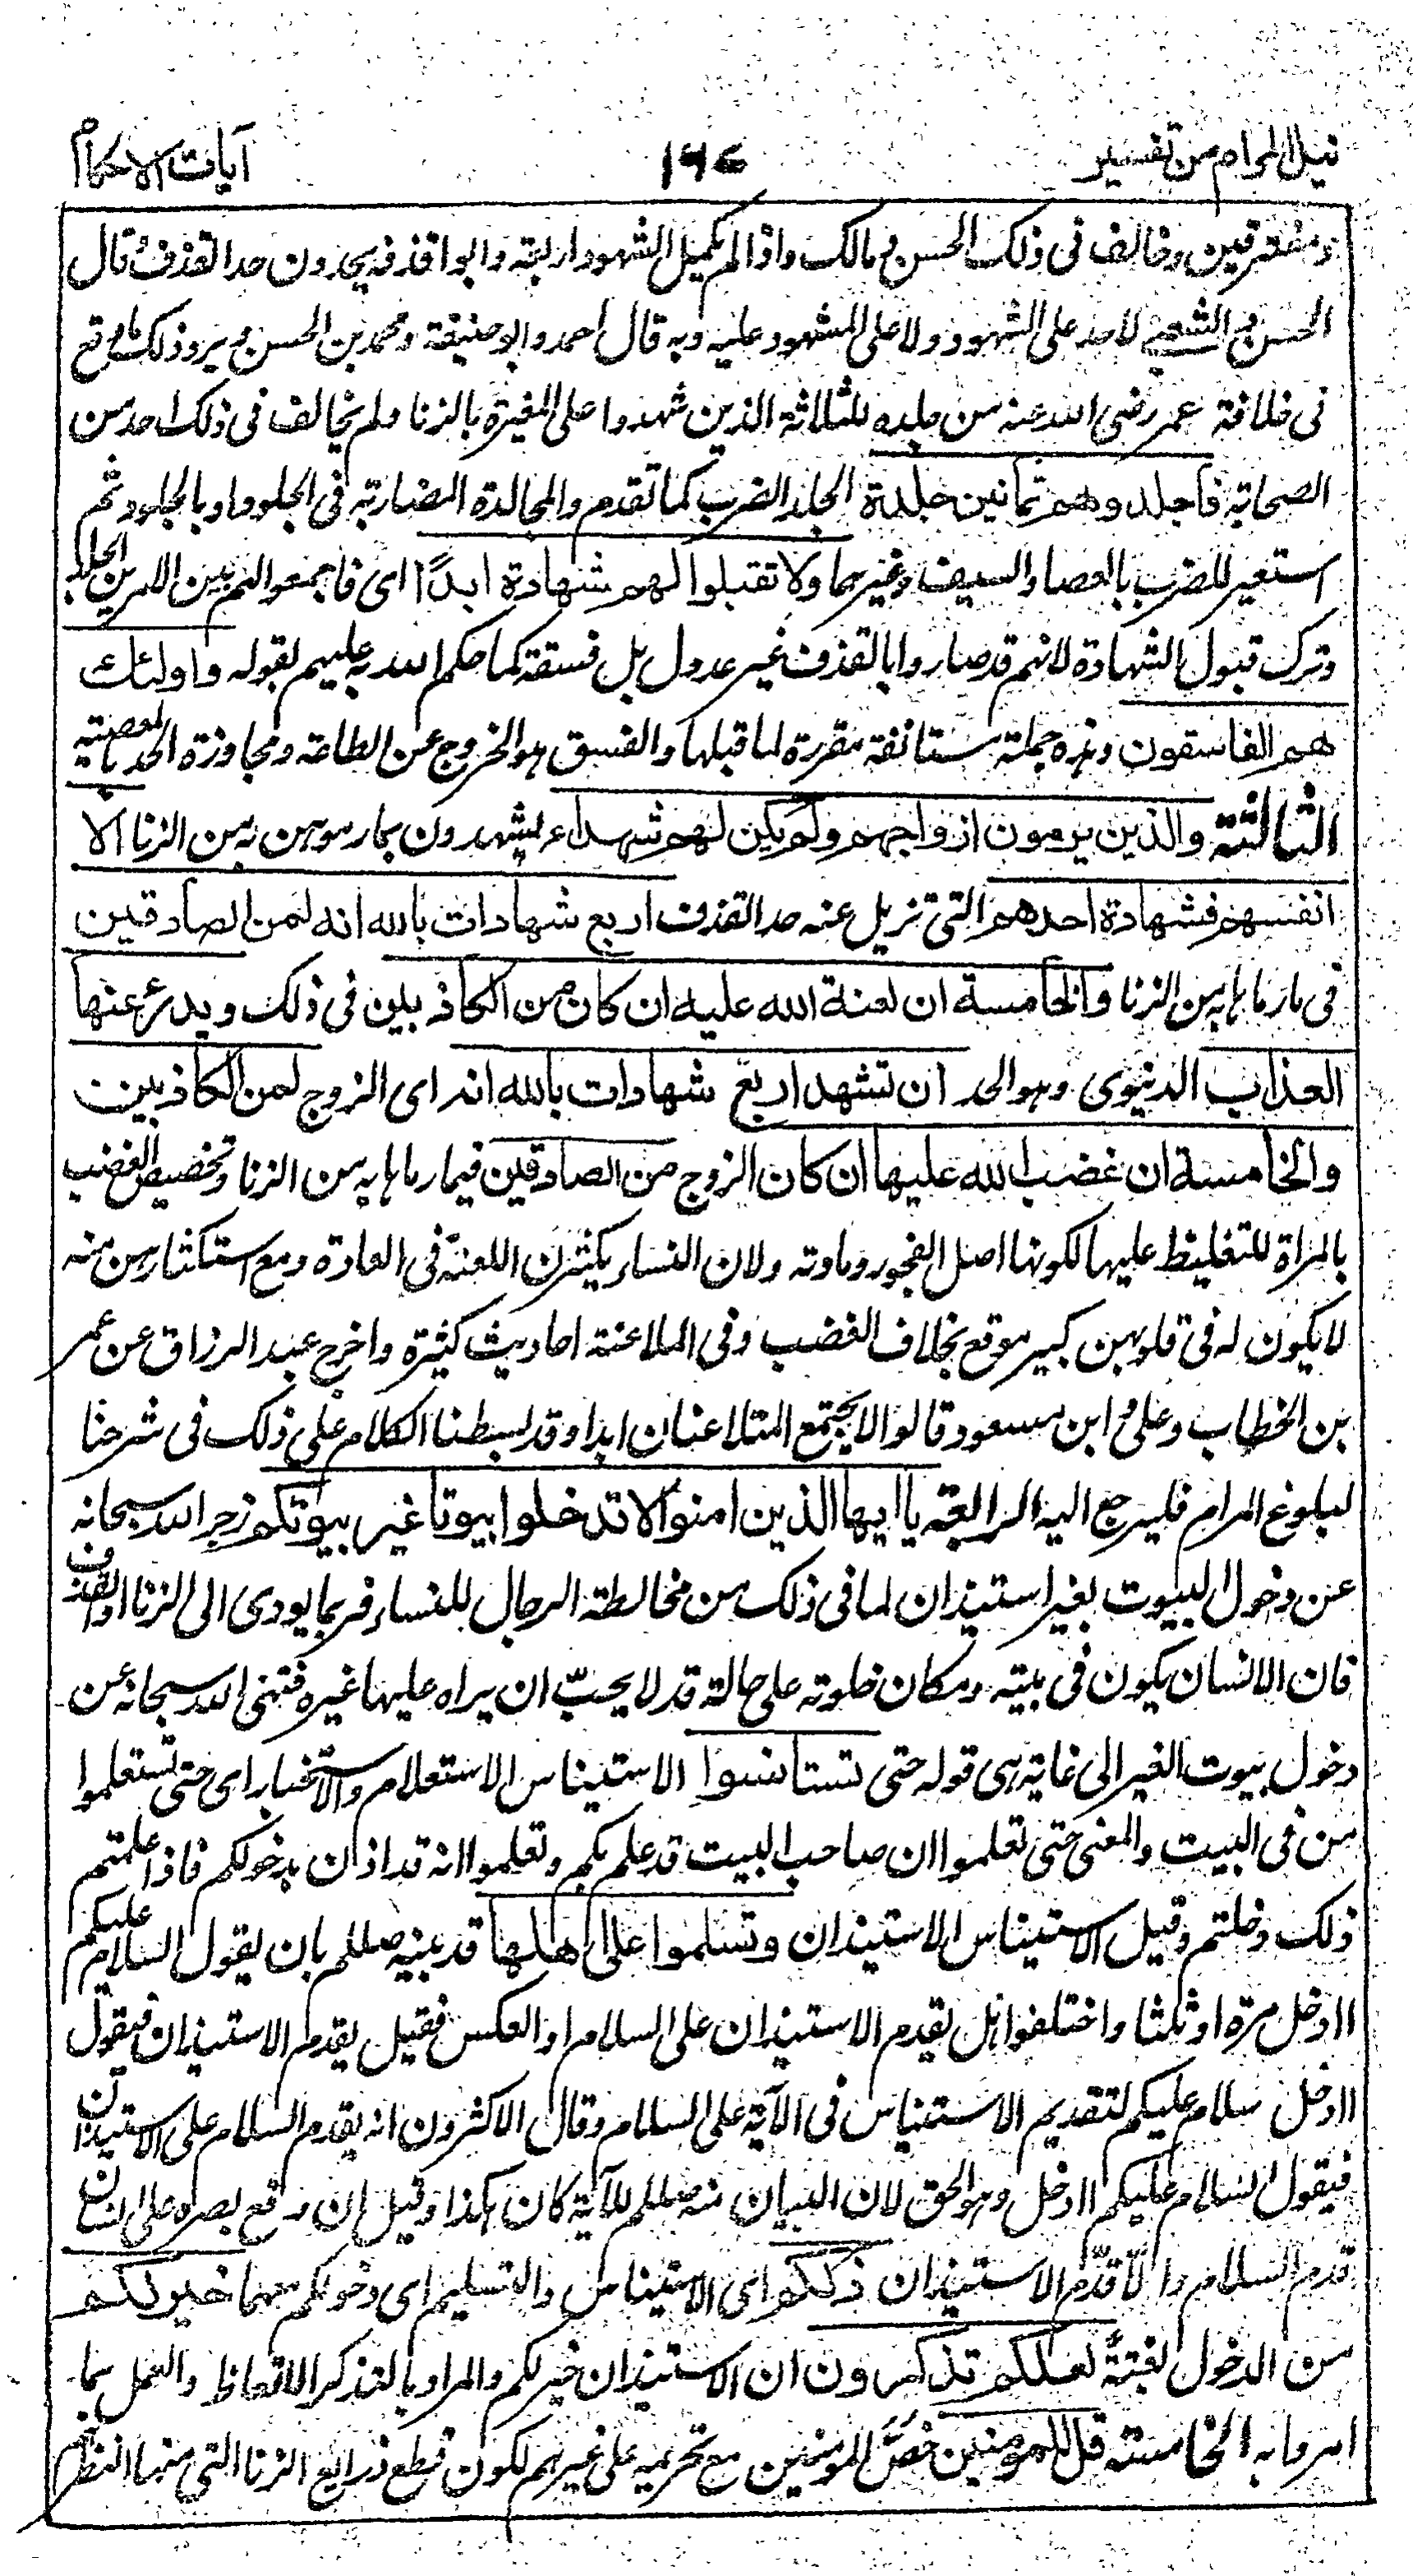 نيل المرام من تفسير ١٦٤ آيات الاحكام
ومفترقين وخالف فى ذلك الحسن ومالك واذا لم تكمل الشهود اربعة وابوا قذفه يحدون حد القذف قال
الحسن والشعبى لا حد على الشهود ولا على المشهود عليه وبه قال احمد وابو حنيفة ومحمد بن الحسن ويرد ذلك ما وقع
فى خلافة عمر رضى الله عنه من جلده للثلاثة الذين شهدوا على المغيرة بالزنا ولم يخالف فى ذلك احد من
الصحابة فاجلدوهم ثمانين جلدة الجلد الضرب كما تقدم والمجالدة المضاربة فى الجلود او بالجلود ثم
استعير للضرب بالعصا والسيف وغيرهما ولا تقبلوا لهم شهادة ابدًا اى فاجمعوا لهم بين الامرين الجلد
وترك قبول الشهادة لانهم قد صاروا بالقذف غير عدول بل فسقة كما حكم الله به عليهم بقوله واولئك
هم الفاسقون وهذه جملة مستانفة مقررة لما قبلها والفسق هو الخروج عن الطاعة ومجاوزة الحد بالمعصية
الثالثة والذين يرمون ازواجهم ولم يكن لهم شهداء يشهدون بما رموهن به من الزنا الا
انفسهم فشهادة احدهم التى تزيل عنه حد القذف اربع شهادات بالله انه لمن الصادقين
فى ما رماها به من الزنا والخامسة ان لعنة الله عليه ان كان من الكاذبين فى ذلك ويدرؤ عنها
العذاب الدنيوى وهو الحد ان تشهد اربع شهادات بالله انه اى الزوج لمن الكاذبين
والخامسة ان غضب الله عليها ان كان الزوج من الصادقين فيما رماها به من الزنا وتخصيص الغضب
بالمراة للتغليظ عليها لكونها اصل الفجور ومادته ولان النساء يكثرن اللعنة فى العادة ومع استكثارهن منه
لا يكون له فى قلوبهن كبير موقع بخلاف الغضب وفى الملاعنة احاديث كثيرة واخرج عبد الرزاق عن عمر
بن الخطاب وعلى وابن مسعود قالوا لا يجتمع المتلاعنان ابدا وقد بسطنا الكلام على ذلك فى شرحنا
لبلوغ المرام فليرجع اليه الرابعة يا ايها الذين امنوا لا تدخلوا بيوتا غير بيوتكم زجر الله سبحانه
عن دخول البيوت بغير استيذان لما فى ذلك من مخالطة الرجال للنساء فربما يودى الى الزنا او القذف
فان الانسان يكون فى بيته ومكان خلوته على حالة قد لا يحبّ ان يراه عليها غيره فنهى الله سبحانه عن
دخول بيوت الغير الى غاية هى قوله حتى تستانسوا الاستيناس الاستعلام والاستخبار اى حتى تستعلموا
من فى البيت والمعنى حتى تعلموا ان صاحب البيت قد علم بكم وتعلموا انه قد اذن بدخولكم فاذا علمتم
ذلك دخلتم وقيل الاستيناس الاستيذان وتسلموا على اهلها قد بينه صللم بان يقول السلام عليكم
اادخل مرة او ثلثا واختلفوا هل يقدم الاستيذان على السلام او العكس فقيل يقدم الاستيذان فيقول
اادخل سلام عليكم لتقديم الاستيناس فى الآية على السلام وقال الاكثرون انه يقدم السلام على الاستيذان
فيقول السلام عليكم اادخل وهو الحق لان البيان منه صللم للآية كان هكذا وقيل ان وقع بصره على انسان
قدم السلام والّا قدّم الاستيذان ذلكم اى الاستيناس والتسليم اى دخولكم معهما خير لكم
من الدخول بغتةً لعلكم تذكرون ان الاستيذان خير لكم والمراد بالتذكر الاتعاظ والعمل بما
امروا به الخامسة قل للمومنين خصّ المومنين مع تحريمه على غيرهم لكون قطع ذرايع الزنا التى منها النظر